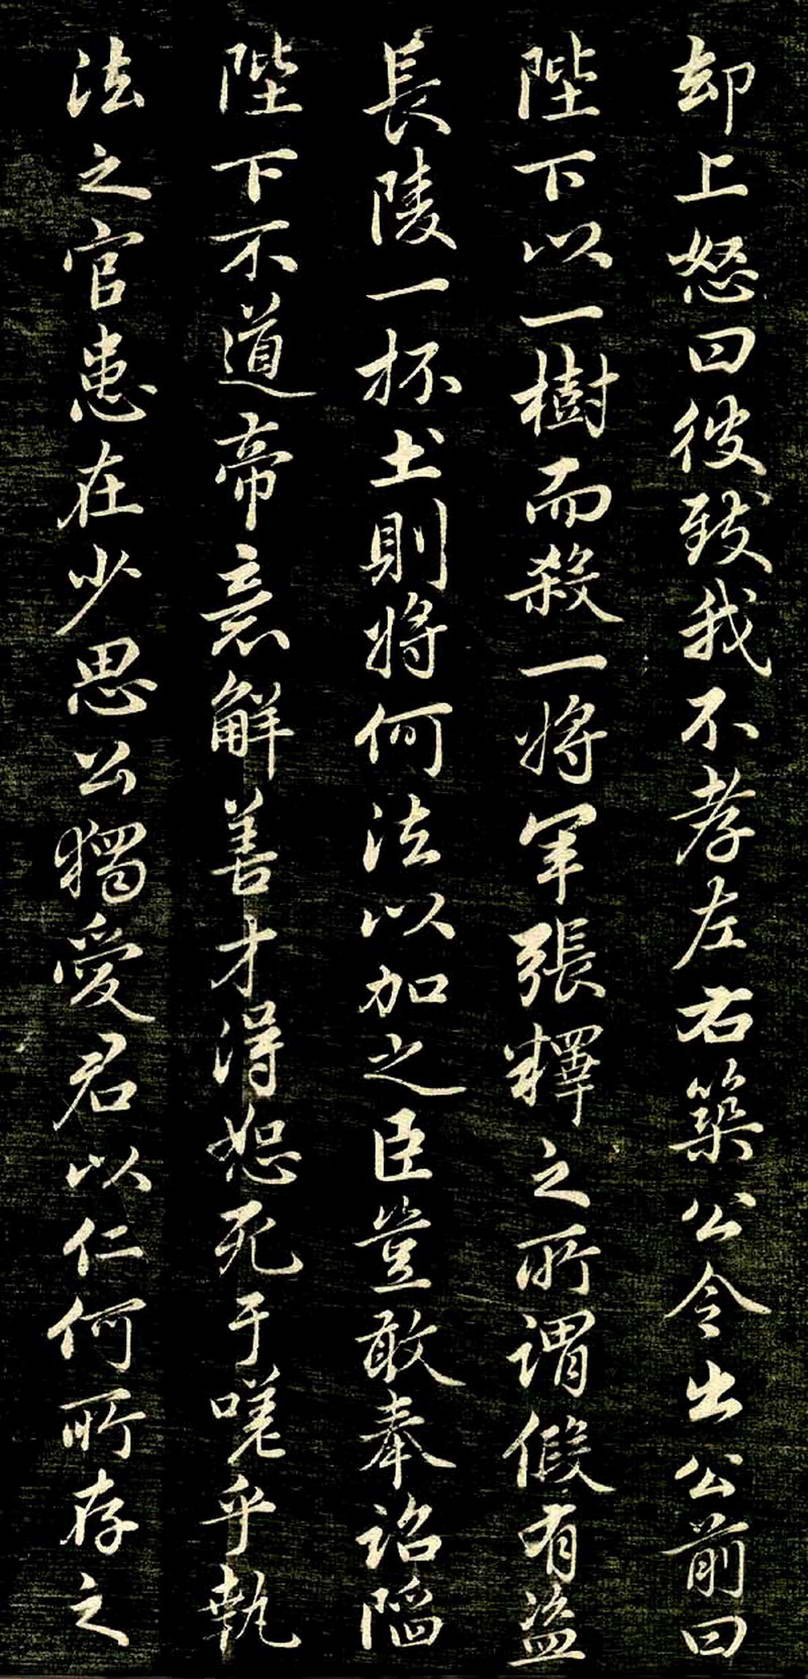 却上怒曰彼致我不孝左右築公令出公前曰
陛下以一樹而殺一將軍張釋之所謂假有盜
長陵一抔土則將何法以加之臣豈敢奉詔陷
陛下不道帝意解善才得恕死于嗟乎執
法之官患在少思公獨愛君以仁何所存之